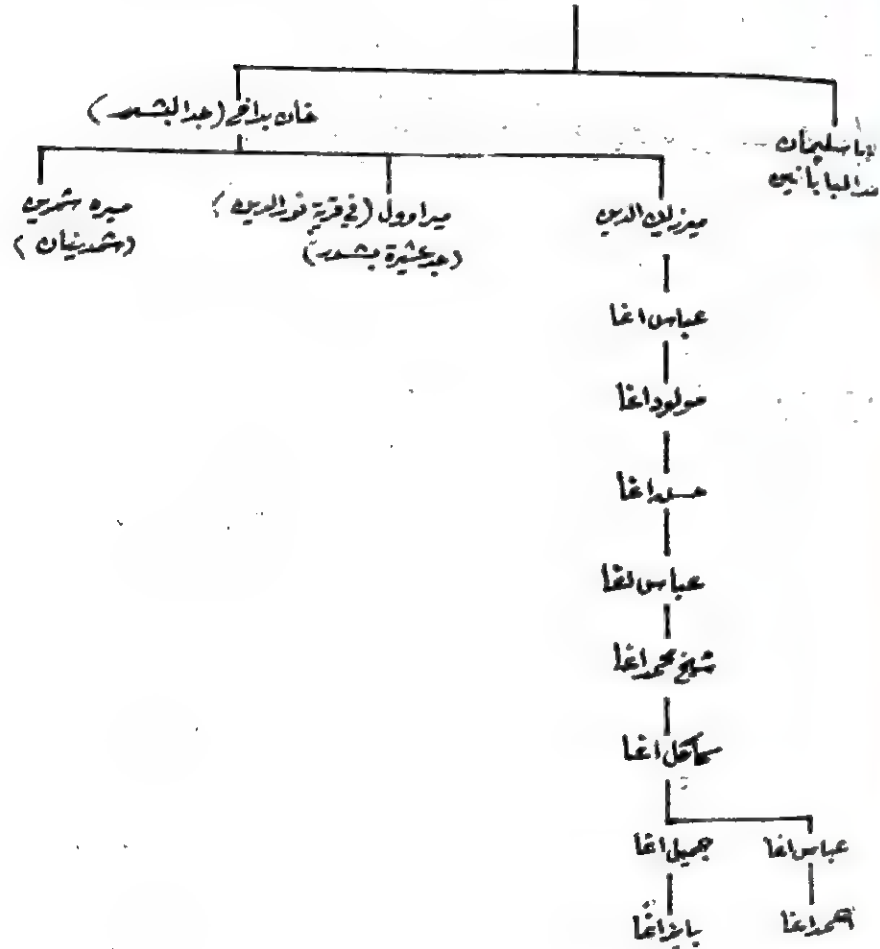 خان بداغ (جد البشدر)
بابا سليمان
جد البابانيين
مير زين الدين
ميراوول (في قرية نورالدين)
(جد عشيرة بشدر)
ميره شمزين
(شمدينان)
عباس اغا
مولود اغا
حسن اغا
عباس اغا
شيخ محمد اغا
اغا
عباس اغا
جميل اغا
احمد اغا
بايز اغا